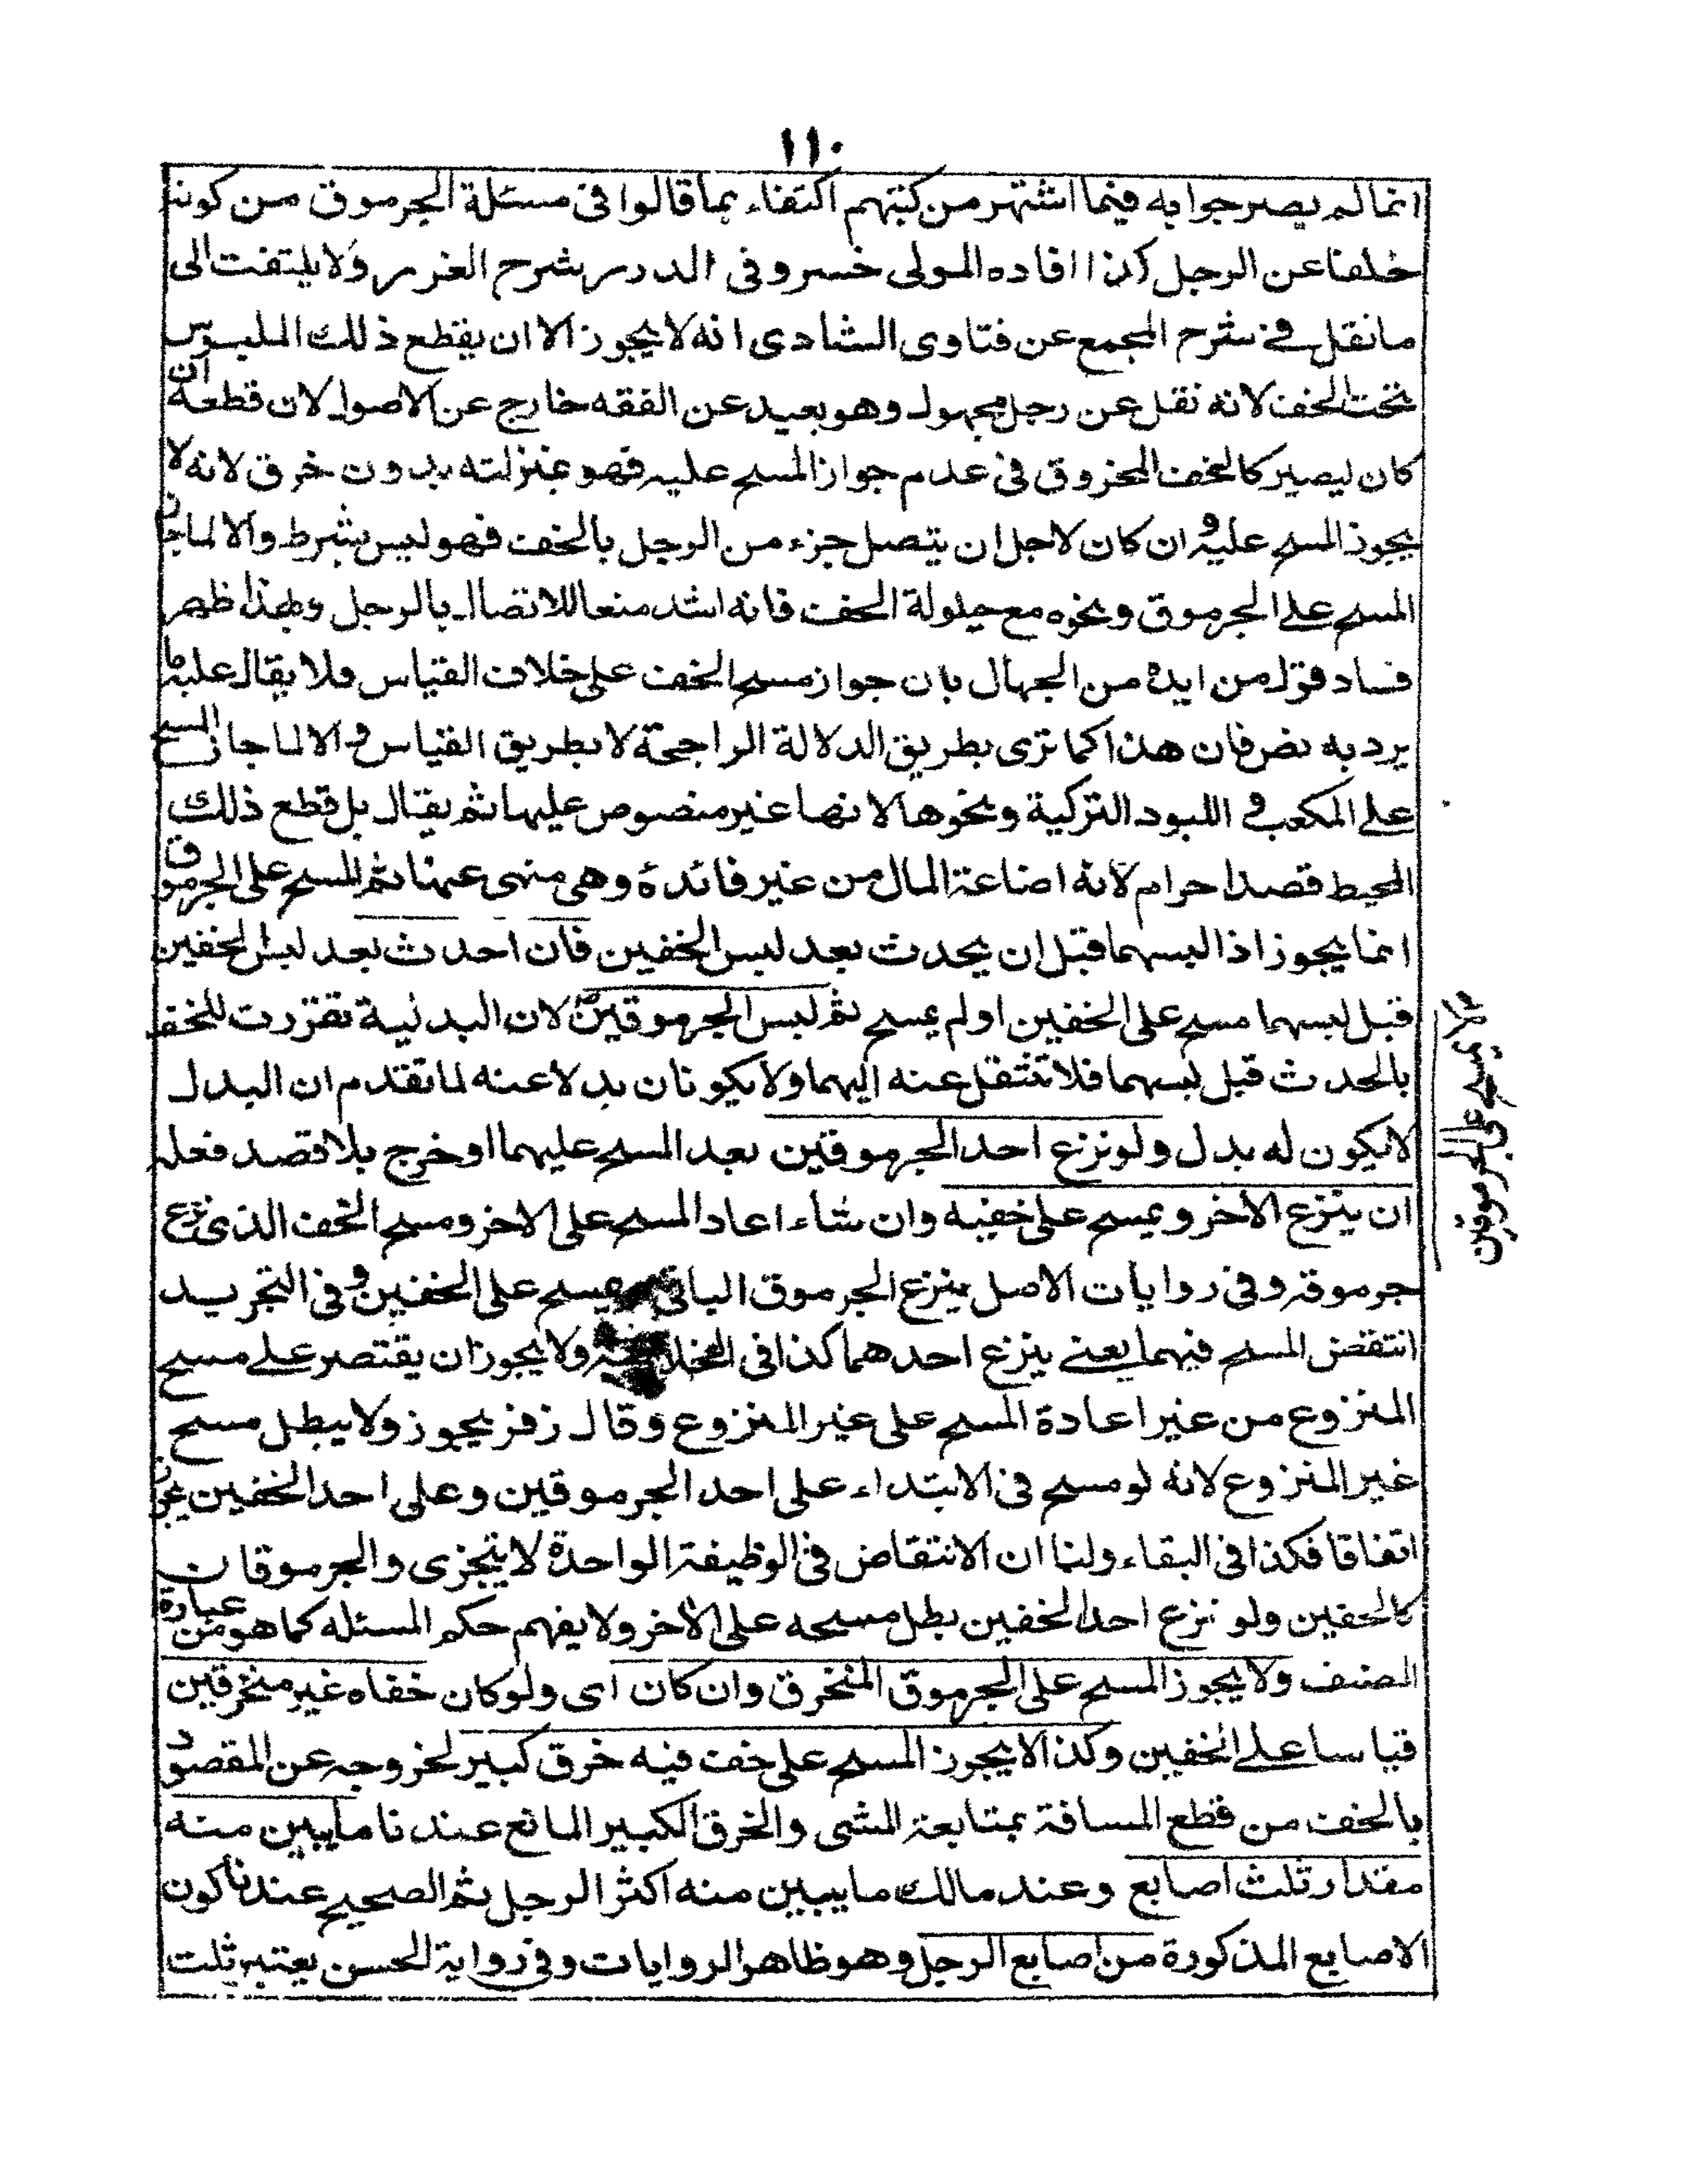 ١١٠
انما لم يصرحوا به فيما اشتهر من كتبهم اكتفاء بما قالوا فى مسئلة الجرموق من كونه
خلفا عن الرجل كذا افاده المولى خسرو فى الدرر شرح الغرر ولا يلتفت الى
ما نقل فى شرح المجمع عن فتاوى الشادى انه لا يجوز الا ان يقطع ذلك الملبوس
تحت الخف لانه نقل عن رجل مجهول وهو بعيد عن الفقه خارج عن الاصول لان قطعه ان
كان ليصير كالخف المخروق فى عدم جواز المسح عليه فهو بمنزلته بدون خرق لانه لا
يجوز المسح عليه وان كان لاجل ان يتصل جزء من الرجل بالخف فهو ليس بشرط والا لما جاز
المسح على الجرموق ونحوه مع حيلولة الخف فانه اشد منعا للاتصال بالرجل وبهذا ظهر
فساد قول من ايده من الجهال بان جواز مسح الخف على خلاف القياس فلا يقال عليه ما
يرد به نص فان هذا كما ترى بطريق الدلالة الراجحة لا بطريق القياس والا لما جاز المسح
على المكعب فى اللبود التركية ونحوها لانها غير منصوص عليها ثم يقال بل قطع ذلك
المحيط قصدا حرام لانه اضاعة المال من غير فائدة وهى منهى عنها ثم المسح على الجرموق
انما يجوز اذا لبسهما قبل ان يحدث بعد لبس الخفين فان احدث بعد لبس الخفين
قبل لبسهما مسح على الخفين او لم يمسح ثم لبس الجرموقين لان البدلية تقررت للخف
بالحدث قبل لبسهما فلا تنتقل عنه اليهما ولا يكونان بدلا عنه لما تقدم ان البدل
لا يكون له بدل ولو نزع احد الجرموقين بعد المسح عليهما او خرج بلا قصد فعليه
ان ينزع الاخر ويمسح على خفيه وان شاء اعاد المسح على الاخر ومسح الخف الذى نزع
جرموقه وفى روايات الاصل ينزع الجرموق الباقى ويمسح على الخفين وفى التجريد
انتقض المسح فيهما يعنى بنزع احدهما كذا فى ولا يجوز ان يقتصر على مسح
المنزوع من غير اعادة المسح على غير المنزوع وقال زفر يجوز ولا يبطل مسح
غير المنزوع لانه لو مسح فى الابتداء على احد الجرموقين وعلى احد الخفين يجوز
اتفاقا فكذا فى البقاء ولنا ان الانتقاض فى الوظيفة الواحدة لا يتجزى والجرموقان
كالخفين ولو نزع احد الخفين بطل مسحه على الاخر ولا يفهم حكم المسئله كما هو من عبارة
المصنف ولا يجوز المسح على الجرموق المنخرق وان كان اى ولو كان خفاه غير منخرقين
قياسا على الخفين وكذا لا يجوز المسح على خف فيه خرق كبير لخروجه عن المقصود
بالخف من قطع المسافة بمتابعة المشى والخرق الكبير المانع عندنا ما يبين منه
مقدار ثلث اصابع وعند مالك ما يبين منه اكثر الرجل ثم الصحيح عندنا كون
الاصابع المذكورة من اصابع الرجل وهو ظاهر الروايات وفى رواية الحسن يعتبر ثلث
يمسح على الجرموقين